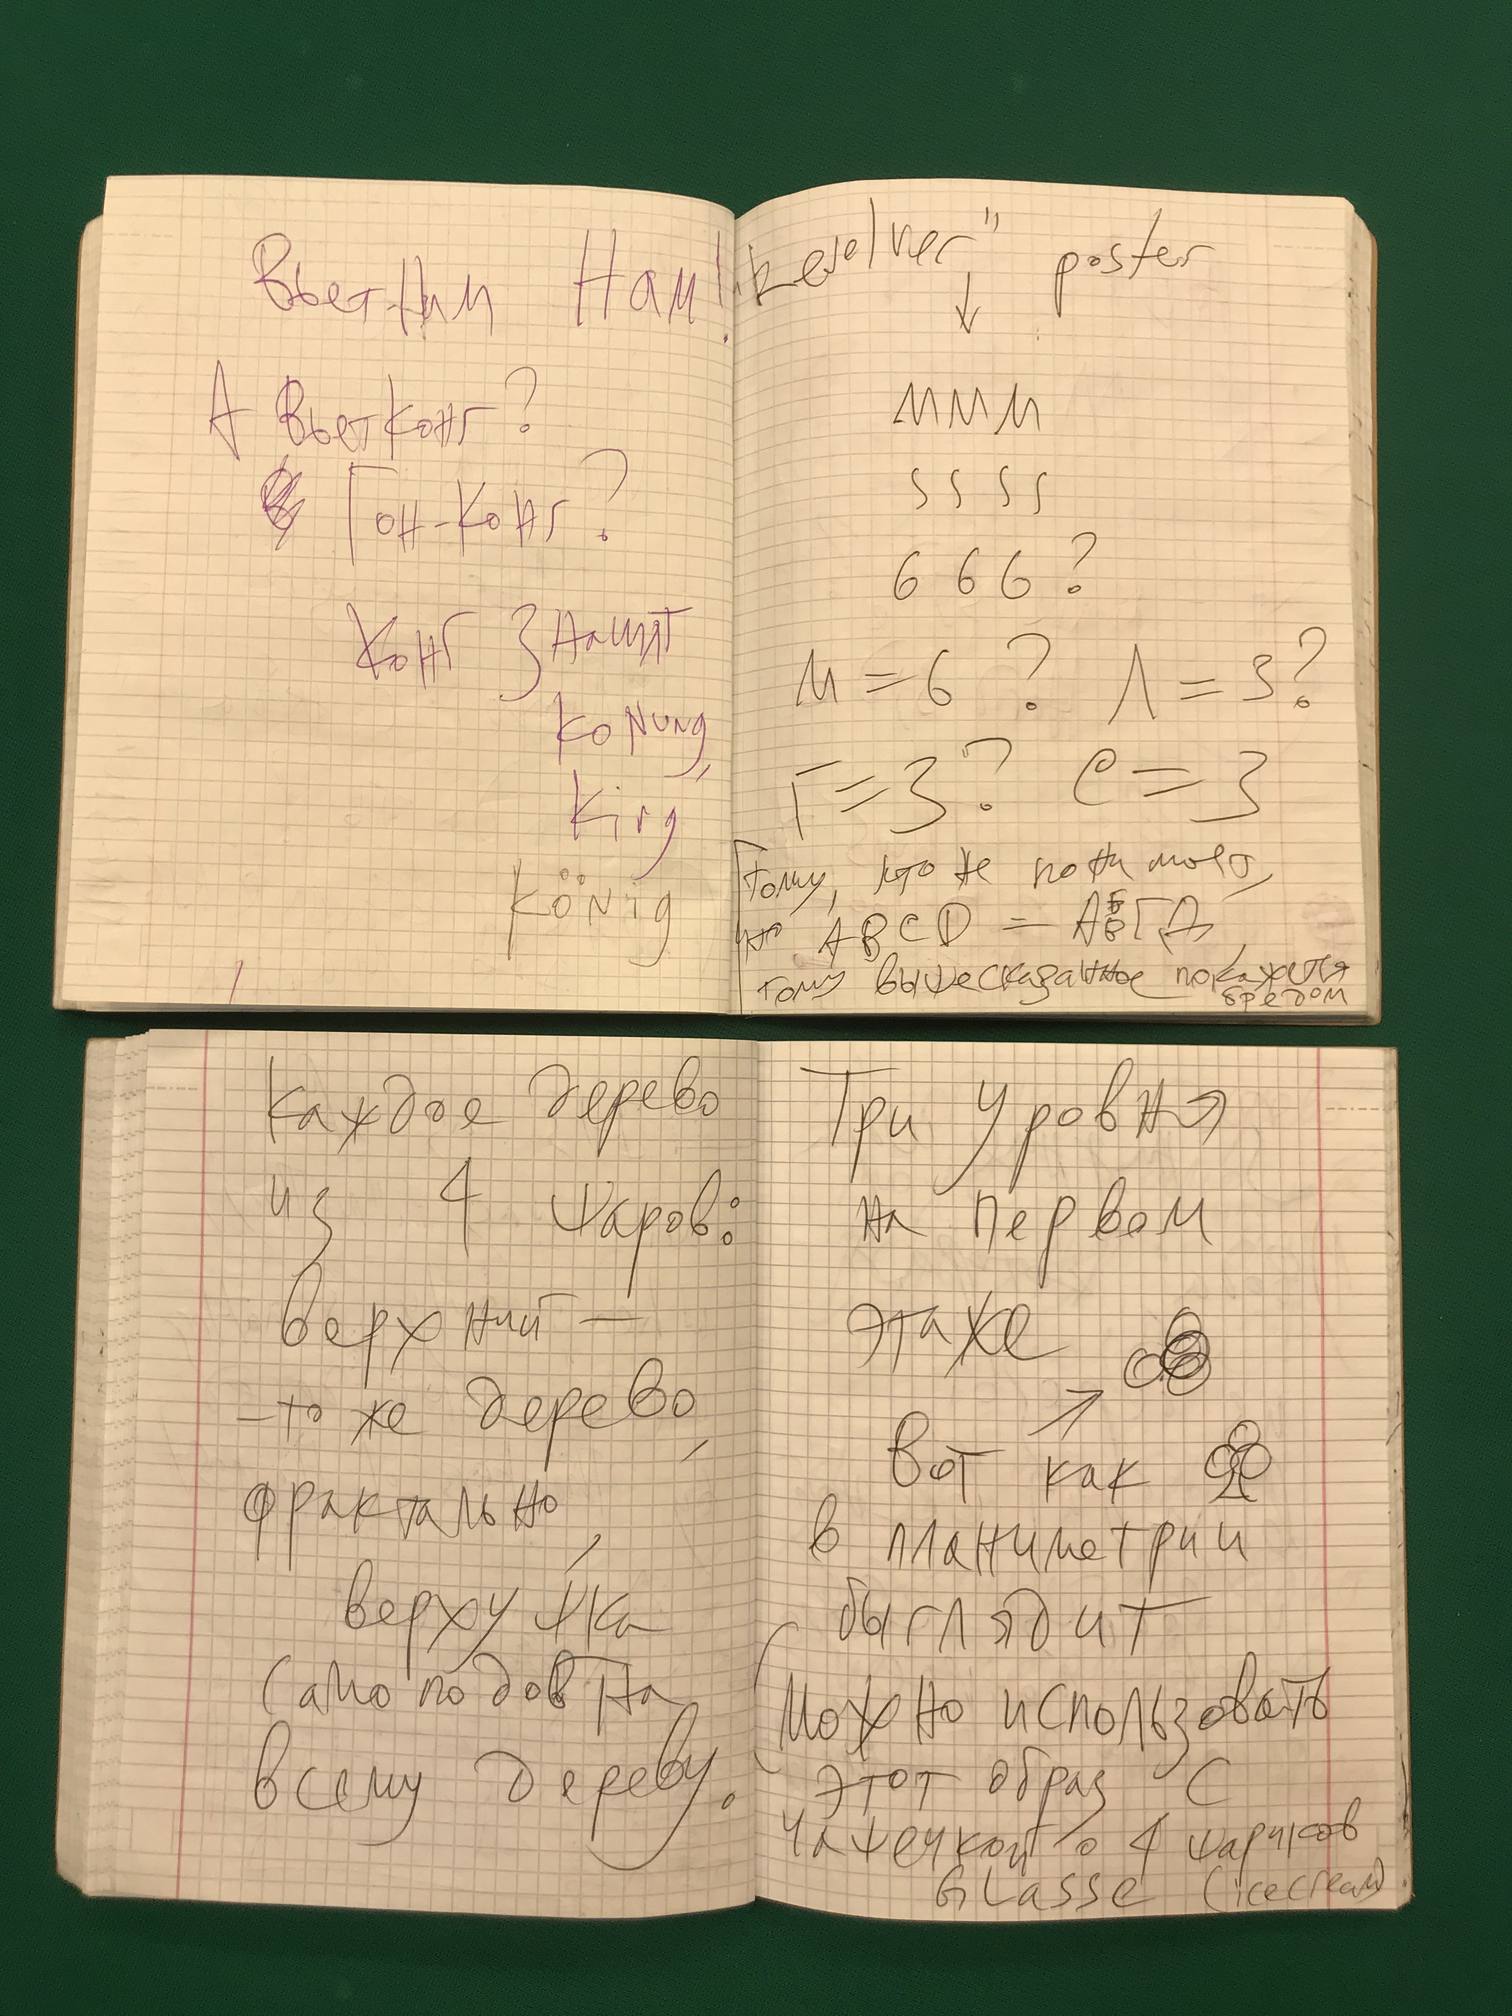 Вьетнам Нам!
А Вьетконг?
Гон-Конг?
Конг значит
konung,
king,
könig
"Revolver" poster
↓
МММ
S S S S
6 6 6 ?
М = 6 ? Λ = 3?
Г = 3? С = 3
Тому, кто не понимает,
что ABCD = АБВГД,
тому вышесказанное покажется
бредом
Каждое дерево
из 4 шаров:
верхний —
— то же дерево,
фрактально,
верхушка
самоподобна
всему дереву.
Три уровня
на первом
этаже
Вот как
в планиметрии
выглядит
(можно использовать
этот образ с
чашечкой о 4 шариков
GLASSE (icecream)